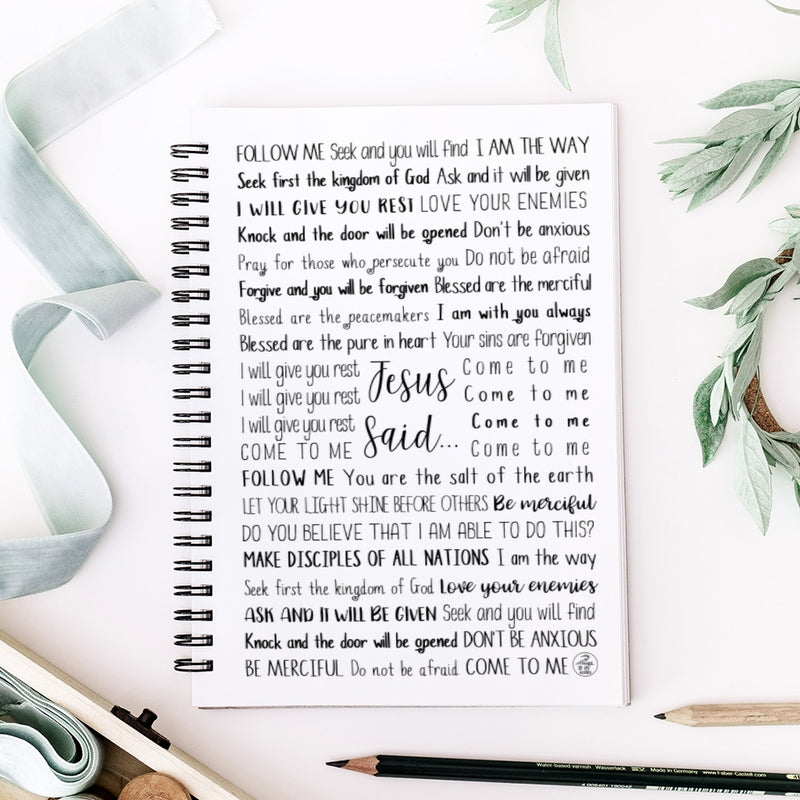 FOLLOW ME Seek and you will find I AM THE WAY
Seek first the kingdom of God Ask and it will be given
I WILL GIVE YOU REST LOVE YOUR ENEMIES
Knock and the door will be opened Don't be anxious
Pray for those who persecute you Do not be afraid
Forgive and you will be forgiven Blessed are the merciful
Blessed are the peacemakers I am with you always
Blessed are the pure in heart Your sins are forgiven
I will give you rest
I will give you rest
I will give you rest
COME TO ME
Jesus
Said...
Come to me
Come to me
Come to me
Come to me
FOLLOW ME You are the salt of the earth
LET YOUR LIGHT SHINE BEFORE OTHERS Be merciful
DO YOU BELIEVE THAT I AM ABLE TO DO THIS?
MAKE DISCIPLES OF ALL NATIONS I am the way
Seek first the kingdom of God Love your enemies
ASK AND IT WILL BE GIVEN Seek and you will find
Knock and the door will be opened DON'T BE ANXIOUS
BE MERCIFUL Do not be afraid COME TO ME
Water-based varnish Wasserlack Made in Germany www.Faber-Castell.com